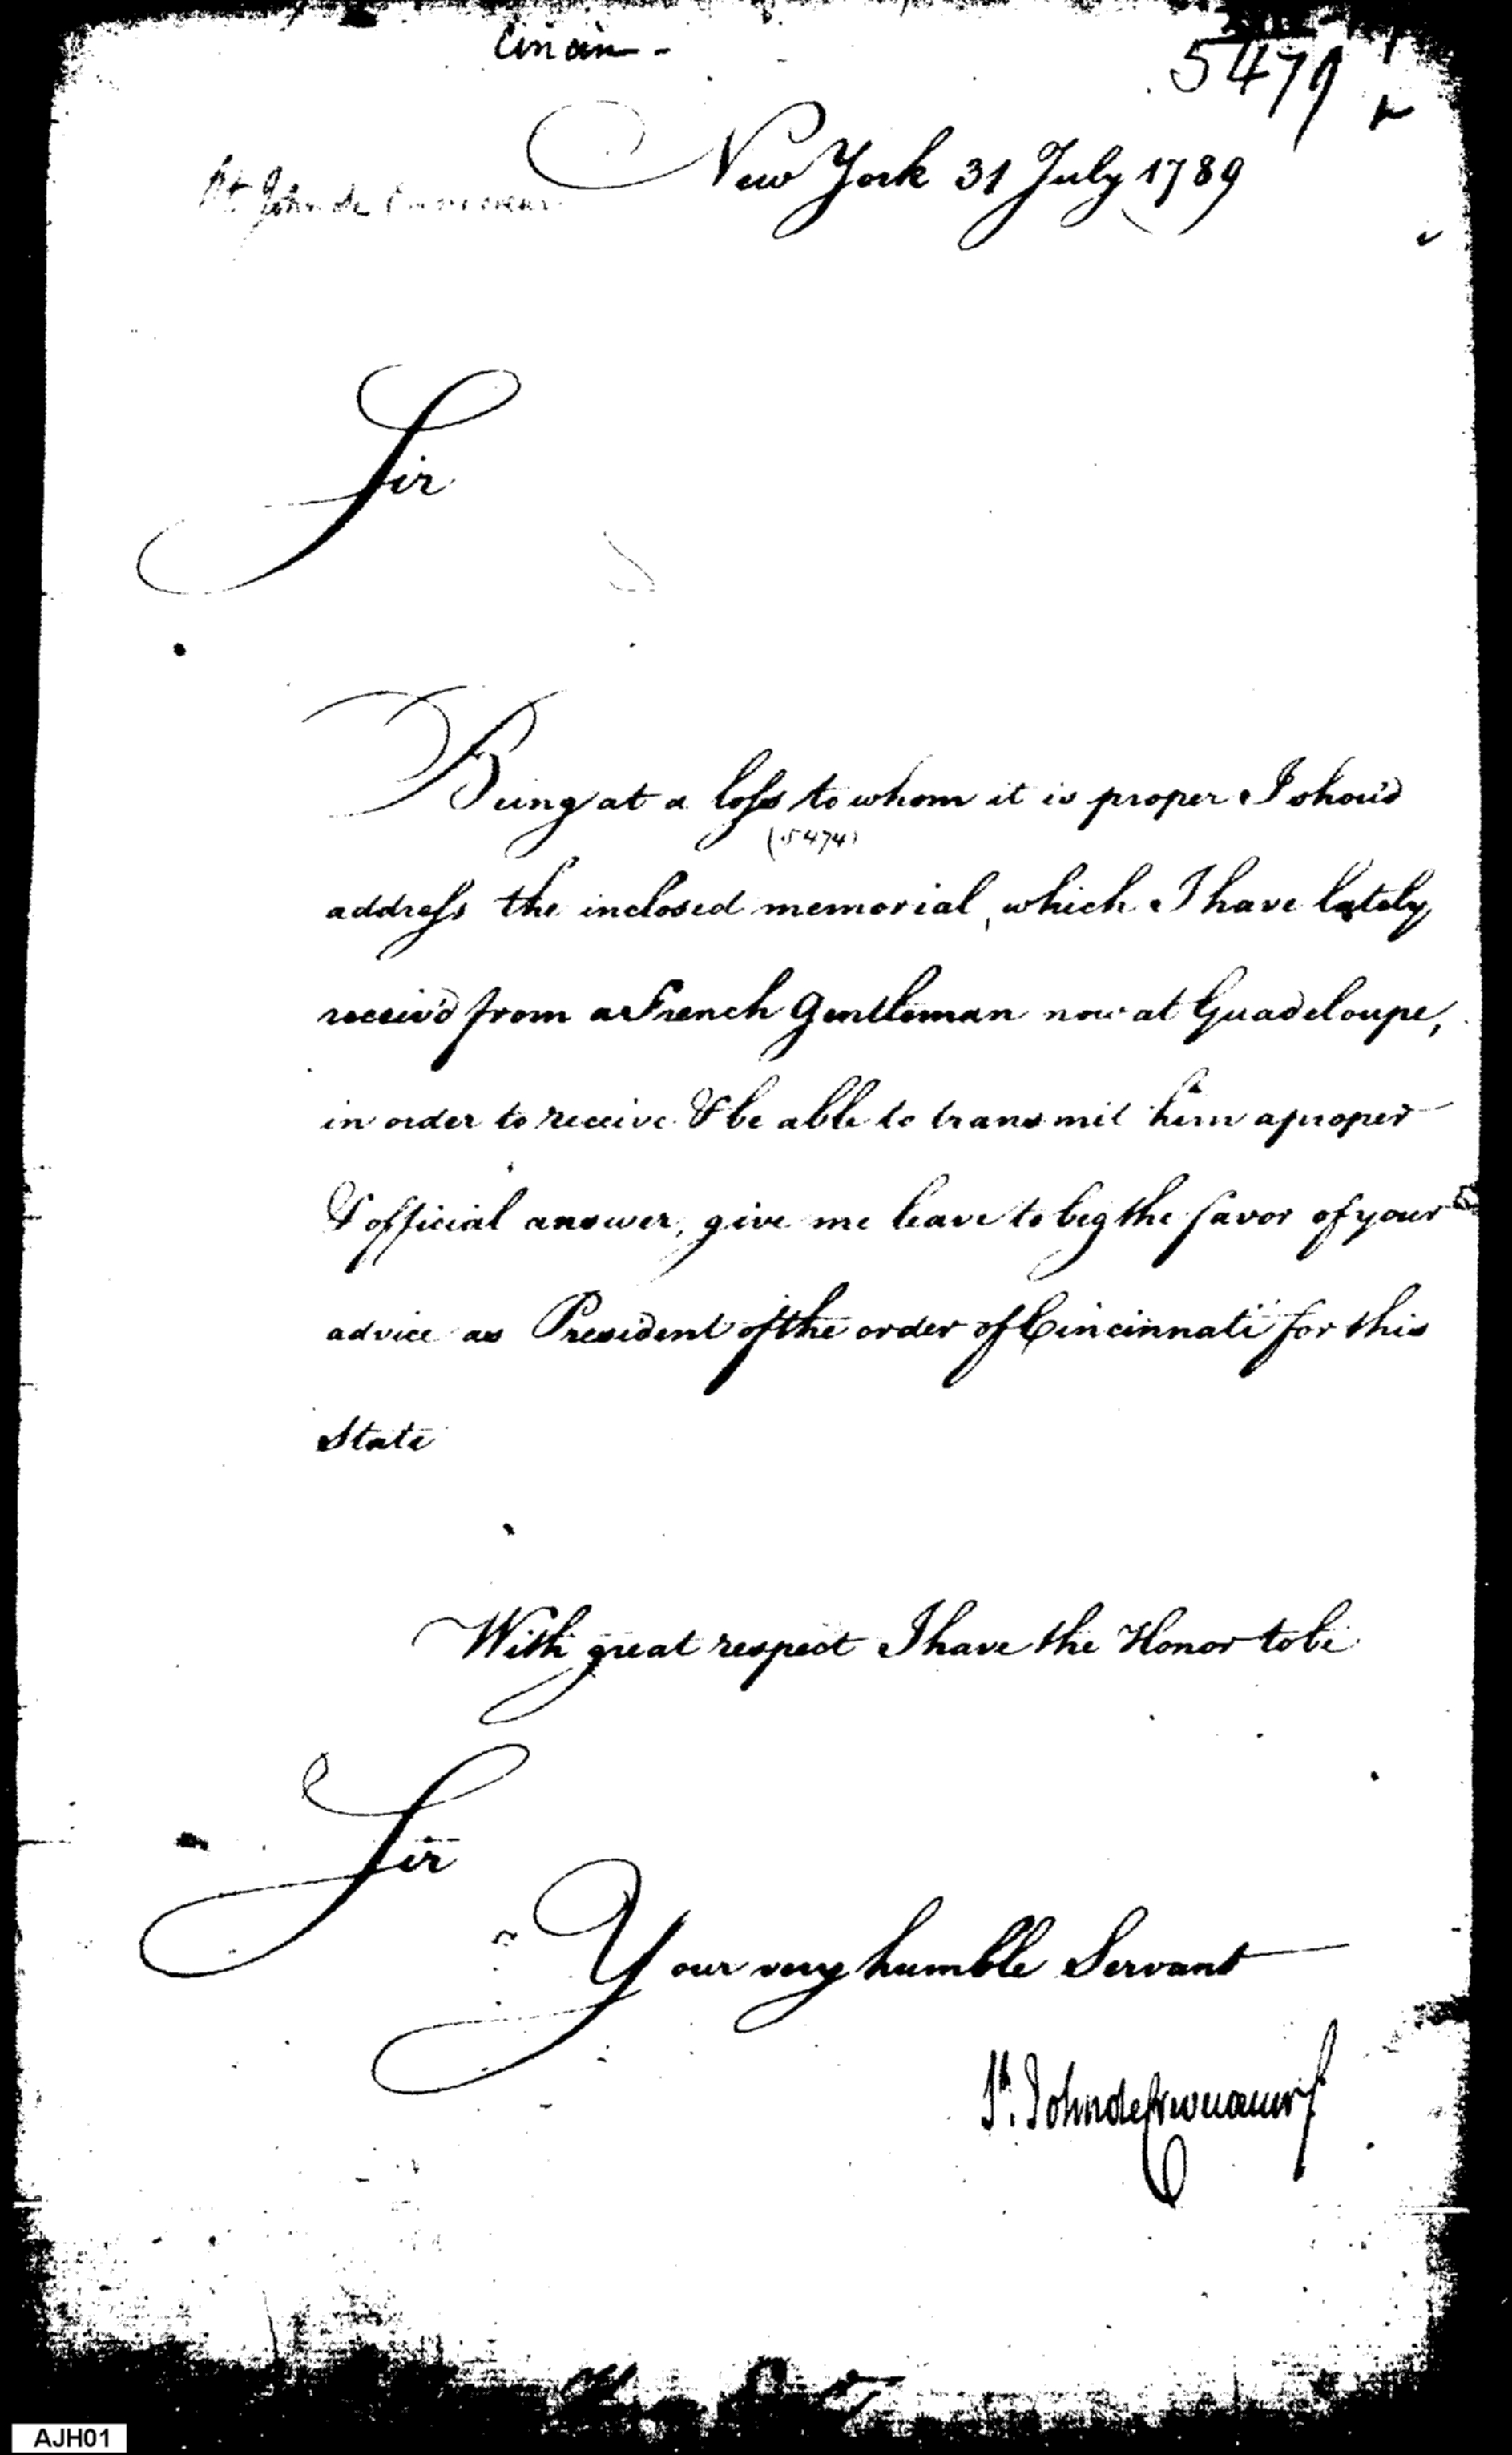 Cincin -
5479
New York 31 July 1789
St John de Crevecoeur
Sir
Being at a loss to whom it is proper I shou'd
(5474)
address the inclosed memorial, which I have lately
receiv'd from a French Gentleman now at Guadeloupe,
in order to receive & be able to transmit him a proper
& official answer, give me leave to beg the favor of your
advice as President of the order of Cincinnati for this
State
With great respect I have the Honor to be
Sir
Your very humble Servant
St. John de Crevecoeur
AJH01